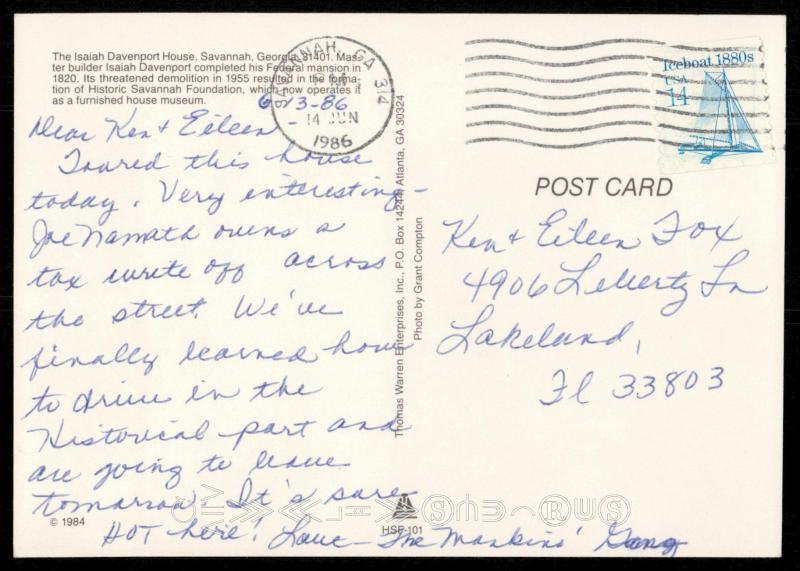 The Isaiah Davenport House, Savannah, Georgia 31401. Mas-
ter builder Isaiah Davenport completed his Federal mansion in
1820. Its threatened demolition in 1955 resulted in the forma-
tion of Historic Savannah Foundation, which now operates it
as a furnished house museum.
6-13-86
Dear Ken & Eileen -
Toured this house
today. Very interesting -
Joe Namath owns a
tax write off across
the street. We've
finally learned how
to drive in the
Historical part and
are going to leave
tomorrow. It's sure
HOT here! Love - The Mankins' Gang
© 1984
HSF-101
Thomas Warren Enterprises, Inc., P.O. Box 14244, Atlanta, GA 30324
Photo by Grant Compton
SAVANNAH, GA 314
PM
14 JUN
1986
Iceboat 1880s
USA
14
POST CARD
Ken & Eileen Fox
4906 Liberty Ln
Lakeland,
Fl 33803